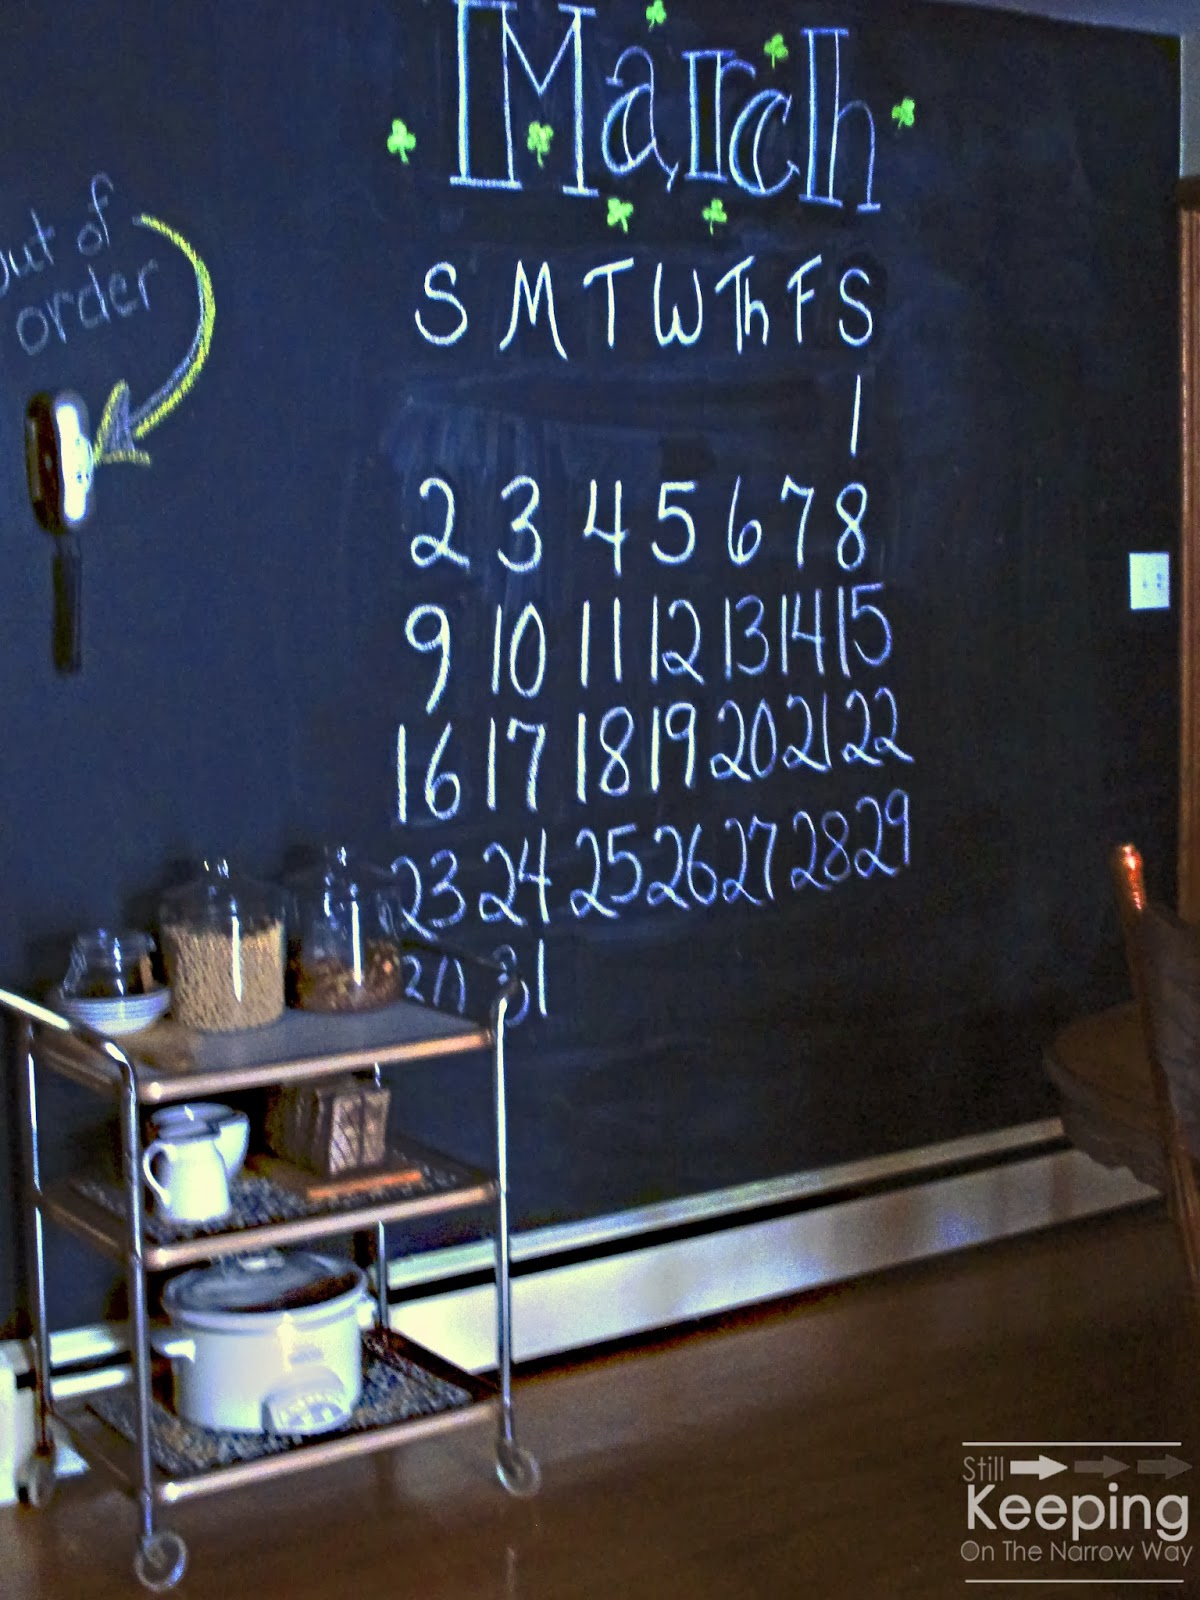 March
out of
order
S M T W Th F S
1
2 3 4 5 6 7 8
9 10 11 12 13 14 15
16 17 18 19 20 21 22
23 24 25 26 27 28 29
31
Still
Keeping
On The Narrow Way